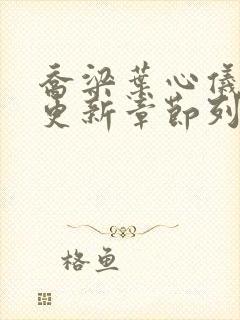 乔梁叶心仪
更新章节列
格鱼